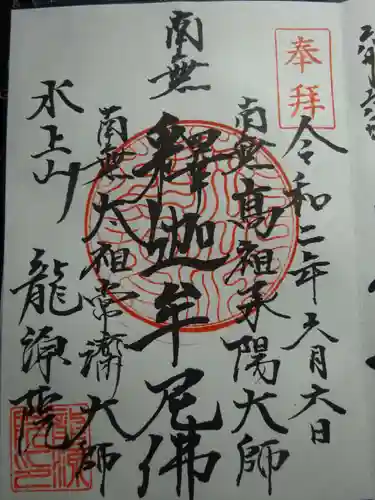 奉拝
令和二年六月六日
南無高祖承陽大師
南無釋迦牟尼佛
南無太祖常濟大師
水上山 龍源院